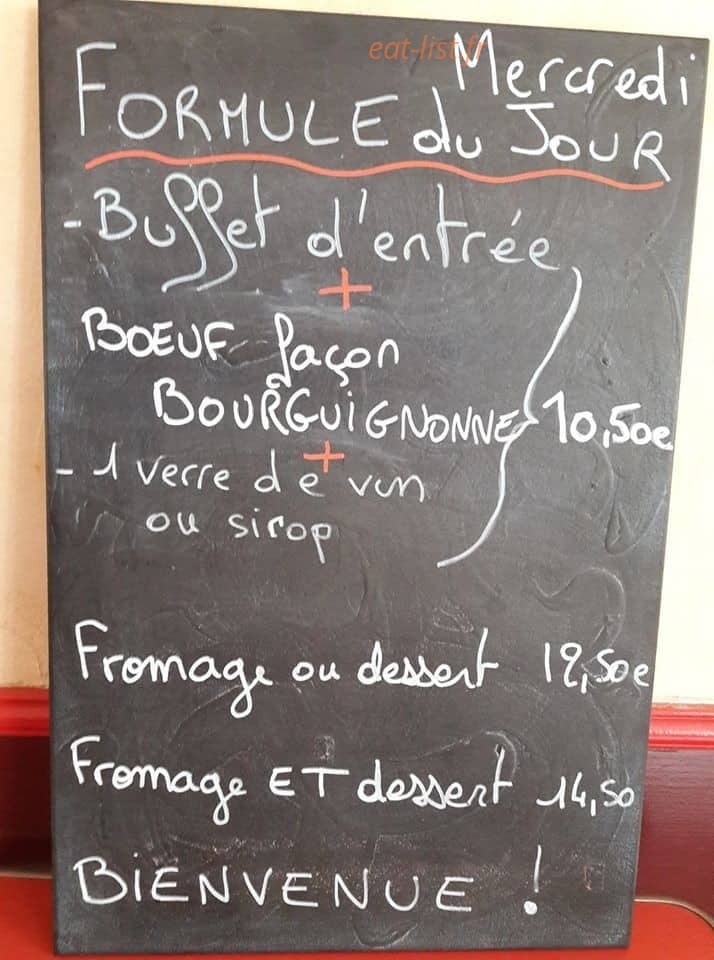 eat-list.fr
Mercredi
FORMULE du JOUR
- Buffet d'entrée
+
BOEUF façon
BOURGUIGNONNE 10,50e
+
- 1 verre de vin
ou sirop
Fromage ou dessert 12,50e
Fromage ET dessert 14,50
BIENVENUE !